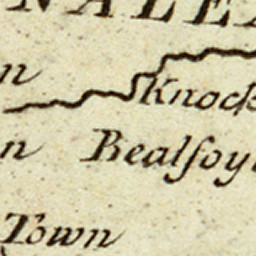 NALE
n
Knock
n Bealſoy
Town